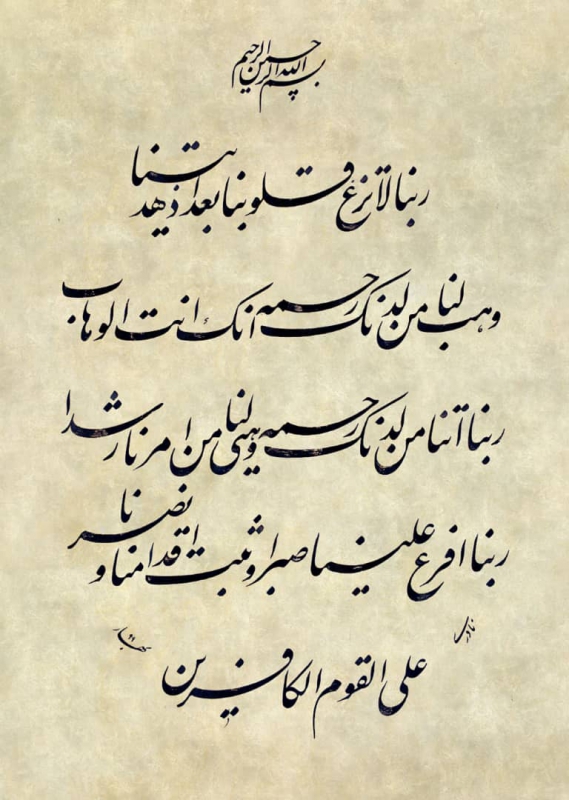 بسم الله الرحمن الرحیم
ربنا لاتزغ قلوبنا بعد اذ هدیتنا
وهب لنا من لدنک رحمه انک انت الوهاب
ربنا اتنا من لدنک رحمه وهیی لنا من امرنا رشدا
ربنا افرغ علینا صبرا و ثبت اقدامنا و نصرنا
علی القوم الکافرین